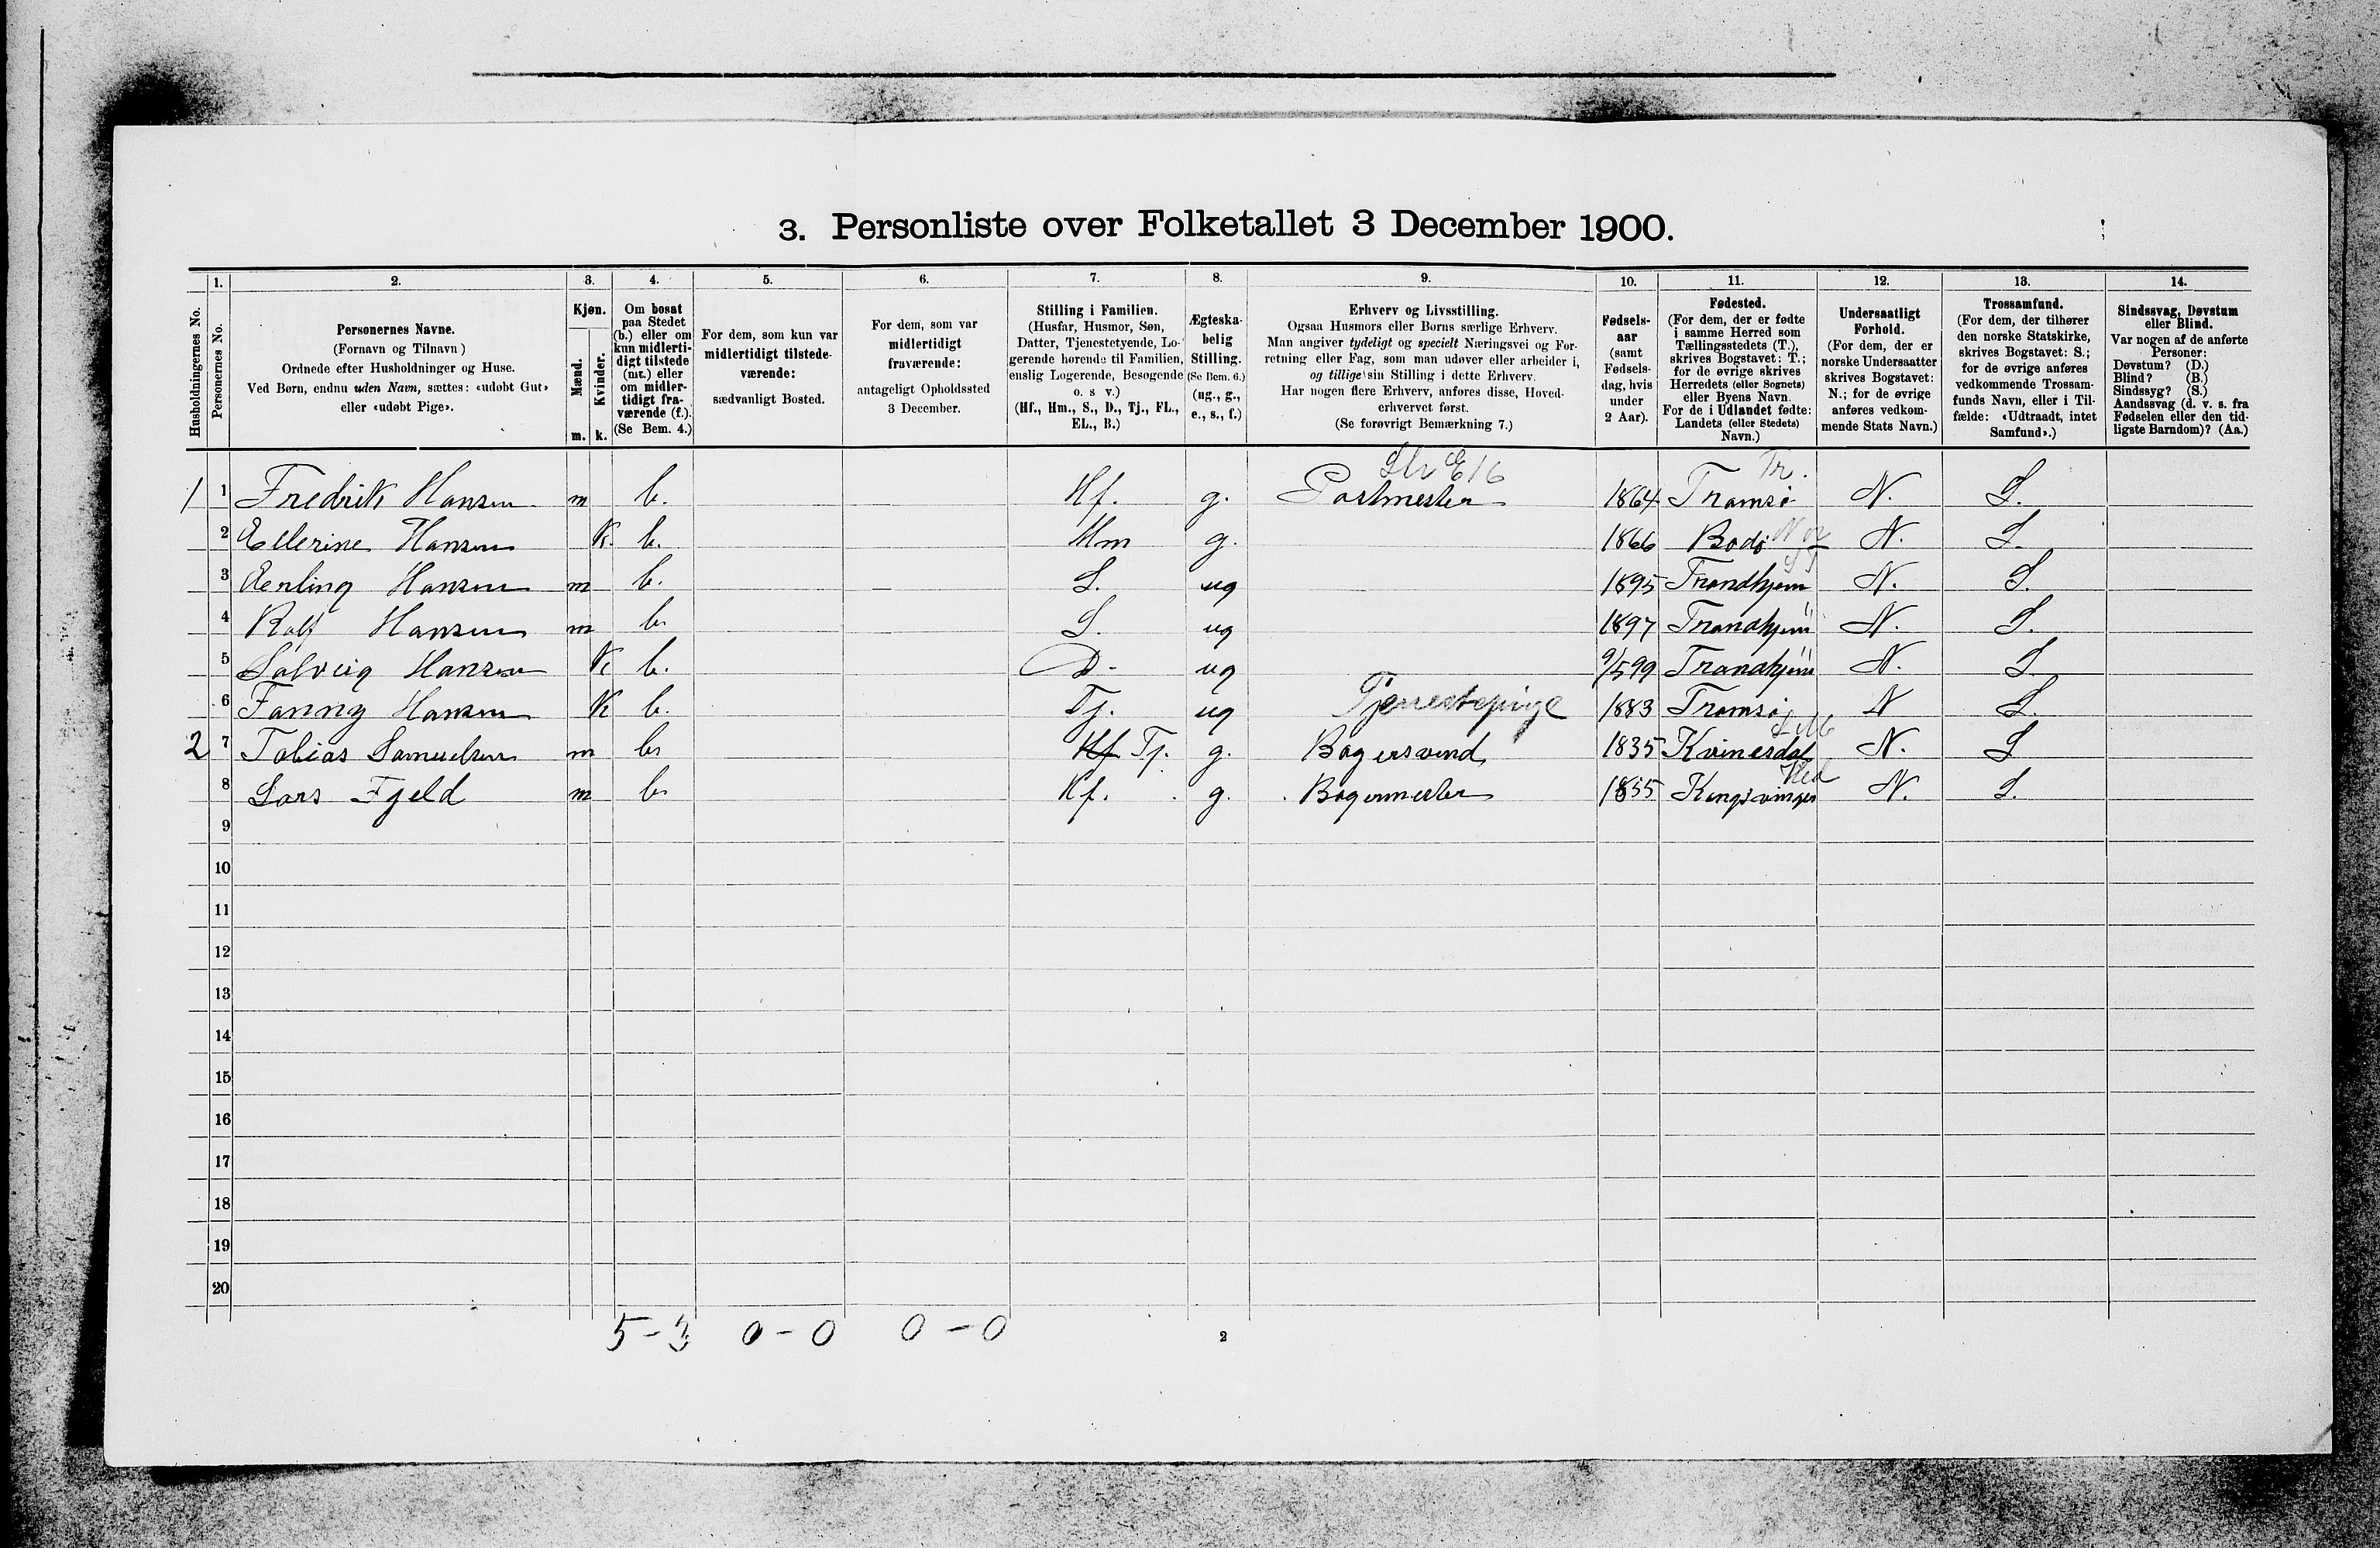 3. Personliste over Folketallet 3 December 1900.
1. 2. 3. 4. 5. 6. 7. 8. 9. 10. 11. 12. 13. 14.
Husholdningernes No.
Personernes No.
Personernes Navne.
(Fornavn og Tilnavn)
Ordnede efter Husholdninger og Huse.
Ved Børn, endnu uden Navn, sættes: «udøbt Gut»
eller «udøbt Pige».
Kjøn.
Mænd.
Kvinder.
m. k.
Om bosat
paa Stedet
(b.) eller om
kun midlerti-
digt tilstede
(mt.) eller
om midler-
tidigt fra-
værende (f.).
(Se Bem. 4.)
For dem, som kun var
midlertidigt tilstede-
værende:
sædvanligt Bosted.
For dem, som var
midlertidigt
fraværende:
antageligt Opholdssted
3 December.
Stilling i Familien.
(Husfar, Husmor, Søn,
Datter, Tjenestetyende, Lo-
gerende hørende til Familien,
enslig Logerende, Besøgende
o. s v.)
(Hf., Hm., S., D., Tj., FL.,
EL., B.)
Ægteska-
belig
Stilling.
(Se Bem. 6.)
(ug., g.,
e., s., f.)
Erhverv og Livsstilling.
Ogsaa Husmors eller Børns særlige Erhverv.
Man angiver tydeligt og specielt Næringsvei og For-
retning eller Fag, som man udøver eller arbeider i,
og tillige sin Stilling i dette Erhverv.
Har nogen flere Erhverv, anføres disse, Hoved-
erhvervet først.
(Se forøvrigt Bemærkning 7.)
Fødsels-
aar
(samt
Fødsels-
dag, hvis
under
2 Aar).
Fødested.
(For dem, der er fødte
i samme Herred som
Tællingsstedets (T.),
skrives Bogstavet: T.;
for de øvrige skrives
Herredets (eller Sognets)
eller Byens Navn.
For de i Udlandet fødte:
Landets (eller Stedets)
Navn.)
Undersaatligt
Forhold.
(For dem, der er
norske Undersaatter
skrives Bogstavet:
N.; for de øvrige
anføres vedkom-
mende Stats Navn.)
Trossamfund.
(For dem, der tilhører
den norske Statskirke,
skrives Bogstavet: S.;
for de øvrige anføres
vedkommende Trossam-
funds Navn, eller i Til-
fælde: «Udtraadt, intet
Samfund».)
Sindssvag, Døvstum
eller Blind.
Var nogen af de anførte
Personer:
Døvstum? (D.)
Blind? (B.)
Sindssyg? (S.)
Aandssvag (d. v. s. fra
Fødselen eller den tid-
ligste Barndom)? (Aa.)
E16 Tr.
1 1 Fredrik Hansen m b. Hf. g. Postmester 1864 Tromsø N. S.
2 Ellerine Hansen K. b. Hm g. 1866 Bodø N. S.
3 Erling Hansen m b. S. ug 1895 Trondhjem N. S.
4 Rolf Hansen m b. S. ug 1897 Trondhjem N. S.
5 Solveig Hansen K b. D. ug 9/5 99 Trondhjem N. S
6 Fanny Hansen K b. Tj. ug Tjenestepige 1883 Tromsø N S.
2 7 Tobias Samuelsen m b. Hf Tj. g. Bagersvend 1835 Kvinesdal N. S
Hed
8 Lars Fjeld m b. Hf. g. Bagermester 1855 Kongsvinger N. S.
9
10
11
12
13
14
15
16
17
18
19
20
5-3 0-0 0-0
2